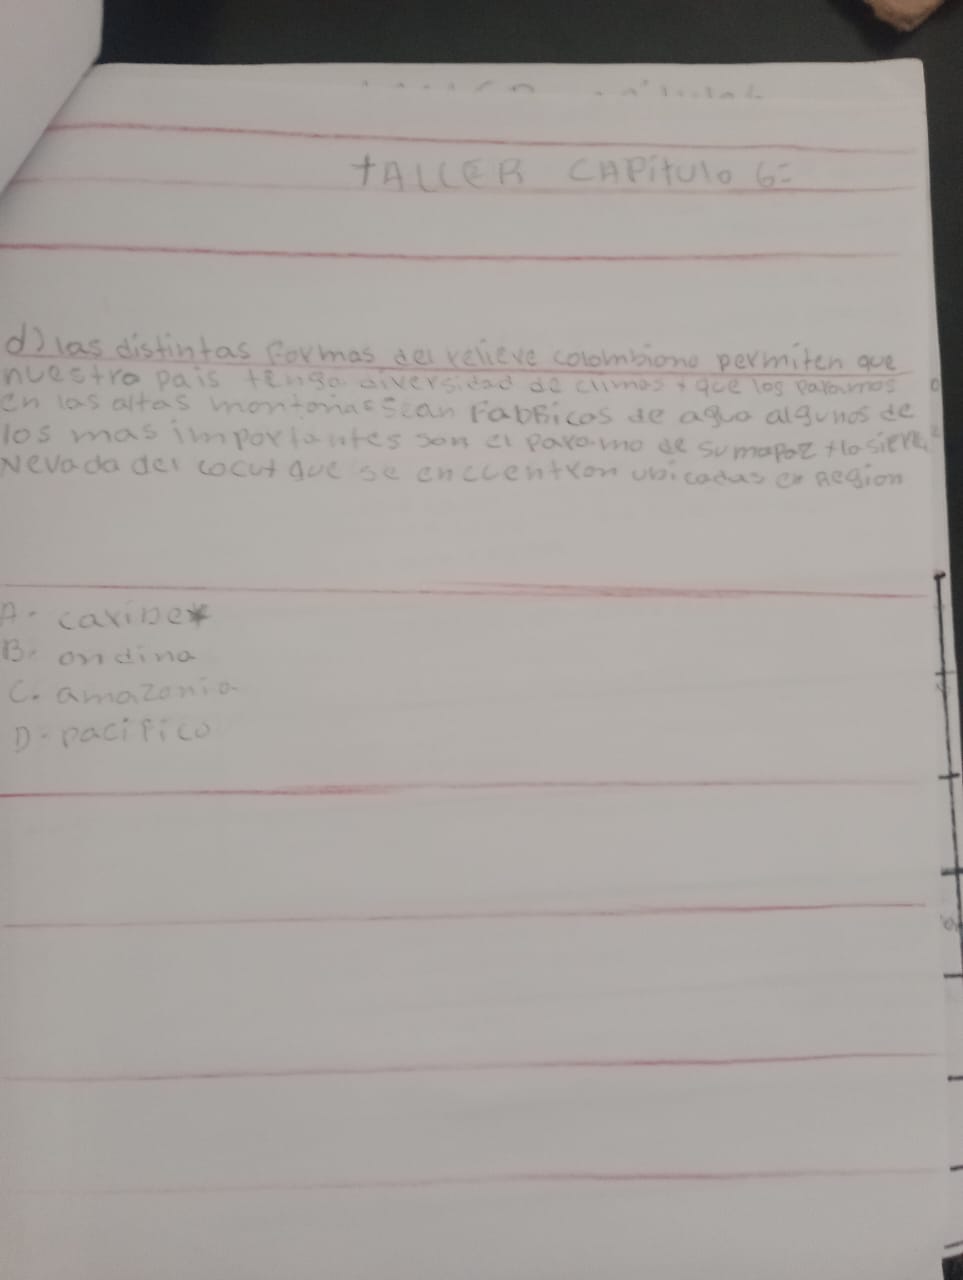 tALLER CAPitulo 6=
d) las distintas formas del relieve colombiano permiten que
nuestro pais tenga diversidad de climas y que los paramos
en las altas montañas sean Fabricas de agua algunos de
los mas importantes son el paramo de sumapaz y la sierra
Nevada del cocuy que se encuentran ubicadas en Region
A- caribe*
B. andina
C. amazonia
D- pacifico